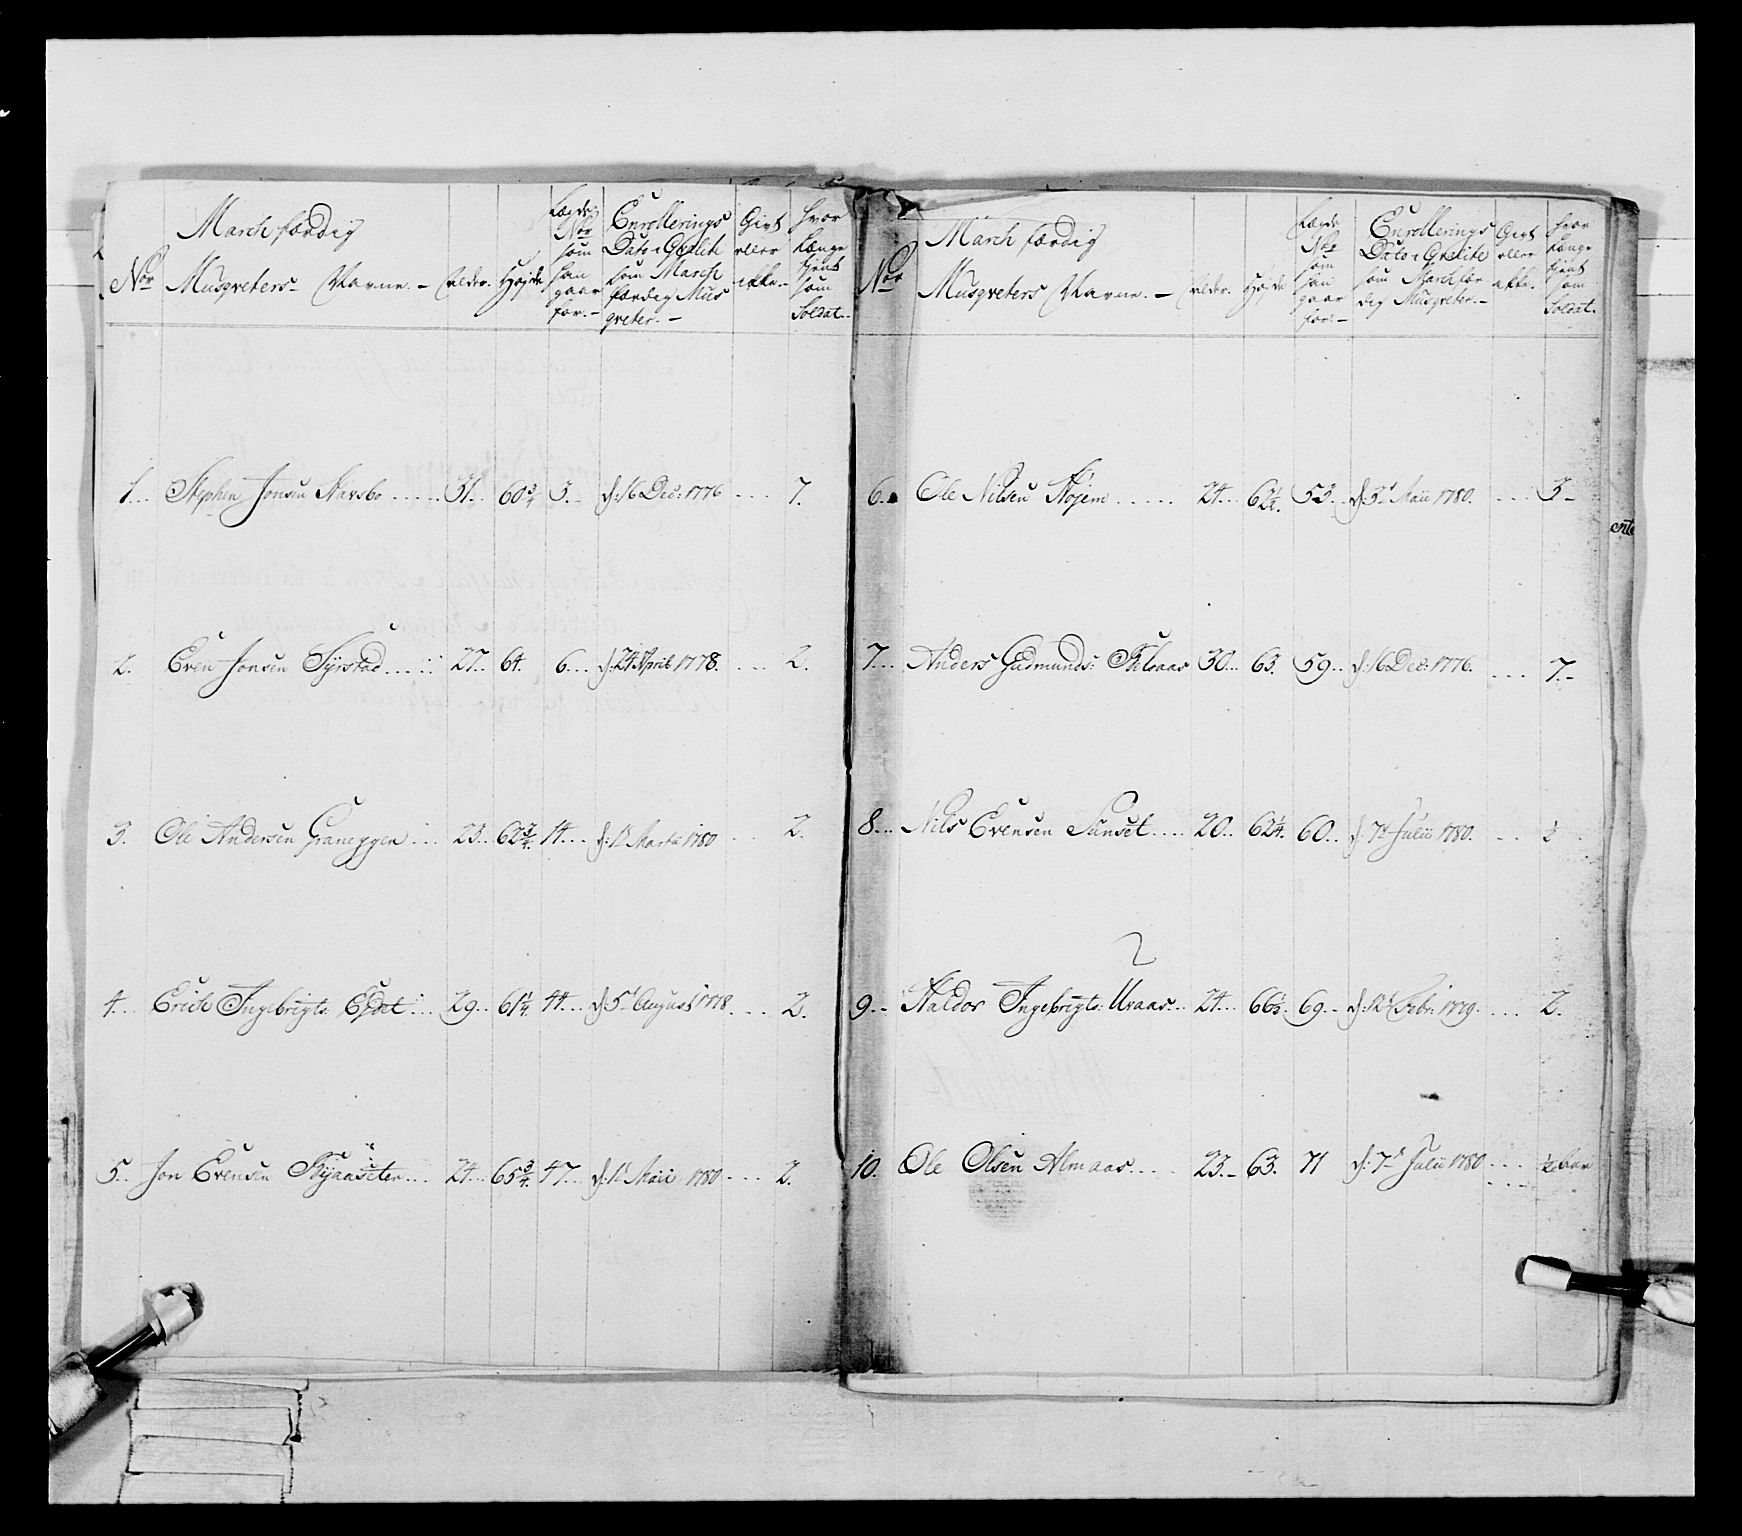 March færdig
Nor Musqveters Navne.
Alder.
Højde
Lægds
Nor
som
han
gaar
for.
Enrollerings
Dato i Qvalite
som March
færdig Mus
qveter.
Givt
eller
ikke.
Hvor
længe
tjent
som
Soldat.
1... Stephen Jonsen Stavsbo ..... 31.. 60 3/4 3.. d: 16 Dec: 1776 .... 7.
2. Even Jonsen Syrstad ..... 27.. 64. 6... d: 24 April 1778. .... 2.
3. Ole Andersen Graneggen ... 23.. 62 3/4. 14... d: 1t Martii 1780 . 2.
4... Erich Ingebrigts: Egdet ... 29.. 61 1/4 44... d: 5t August 1778. .... 2.
5.. Jon Evensen Kyaaseter... 24... 65 3/4. 47... d: 1t Maii 1780 .... 2.
March færdig
Nor Musqveters Navne.
Alder.
Højde
Lægds
Nor
som
han
gaar
for
Enrollerings
Dato i Qvalite
som March fær
dig Musqveter.
Givt
eller
ikke.
Hvor
længe
tjent
som
Soldat.
6.. Ole Nilsen Højem ...... 24... 62 1/4. 53.. d: 3t Maii 1780. .... 3
7... Anders Gudmunds: 30... 63. 59.. d: 16 Dec: 1776. .... 7.
8... Nils Evensen Sunset.... 20.. 62 1/4. 60... d: 7t Julii 1780. ... 1/2
9.. Haldor Ingebrigts: Uraas... 24... 66 1/2. 69.. d: 12t Febr: 1779. .... 2.
10. Ole Olsen Almaas.... 23. 63. 71 d: 7t Julii 1780 .... 1/2 Aar